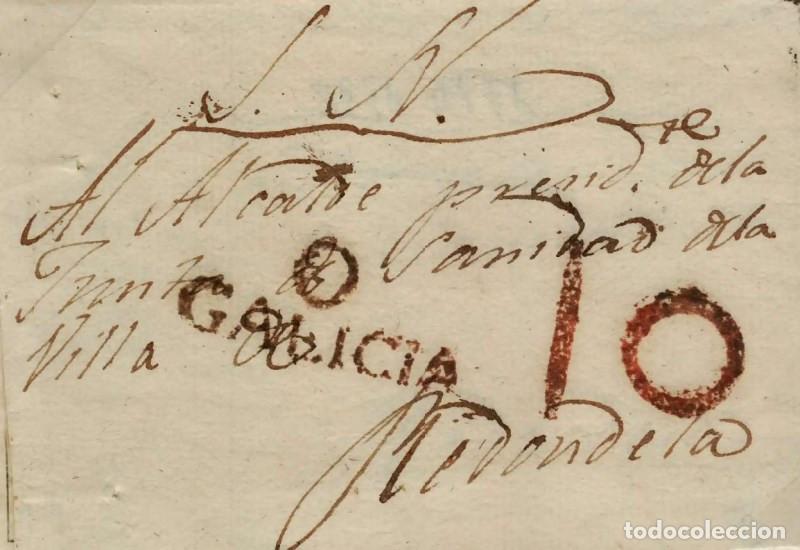 S. N.
Al Alcalde presid.te de la
Junta de Sanidad de la
Villa de
Redondela
8
GALICIA
10
todocoleccion